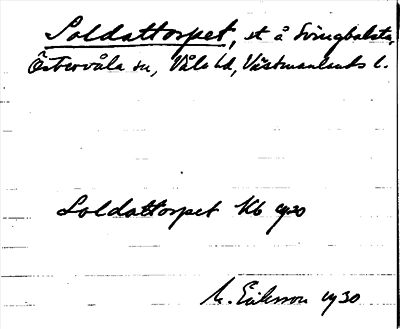 Soldattorpet, st å Svingbolsta,
Östervåla sn, Våla hd, Västmanlands l.
Soldattorpet Kb 1930
M. Eriksson 1930